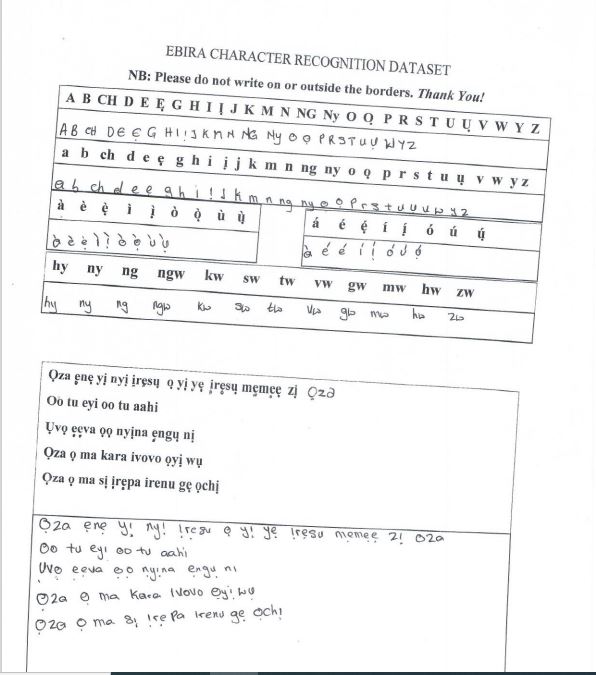 EBIRA CHARACTER RECOGNITION DATASET
NB: Please do not write on or outside the borders. Thank You!
A B CH D E Ẹ G H I Ị J K M N NG Ny O Ọ P R S T U Ụ V W Y Z
A B CH D E Ẹ G H I Ị J K M N NG Ny O Ọ P R S T U Ụ W Y Z
a b ch d e ẹ g h i ị j k m n ng ny o ọ p r s t u ụ v w y z
a b ch d e ẹ g h i ị J k m n ng ny o ọ P r s t u ụ v w y z
à è ẹ̀ ì ị̀ ò ọ̀ ù ụ̀
à è ẹ̀ ì ị̀ ò ọ̀ ù ụ̀
á é ẹ́ í ị́ ó ú ụ́
à é ẹ́ í ị́ ó ú
hy ny ng ngw kw sw tw vw gw mw hw zw
hy ny ng ngw kw sw tw vw gw mw hw zw
Ọza ẹnẹ yị nyị ịrẹsụ ọ yị yẹ ịrẹsụ mẹmẹẹ zị Ọza
Oo tu eyi oo tu aahi
Ụvọ ẹẹva ọọ nyịna ẹngụ nị
Ọza ọ ma kara ivovo ọyị wụ
Ọza ọ ma sị ịrẹpa irenu gẹ ọchị
Ọza ẹnẹ yị nyị Iresu ọ yị yẹ Iresu memeẹ zị oza
Oo tu eyi oo tu aahi
Uvọ eeva ọo nyina engu ni
Ọza ọ ma kara Ivovo ọyị wu
Ọza ọ ma sị Irẹpa Irenu gẹ ọchị